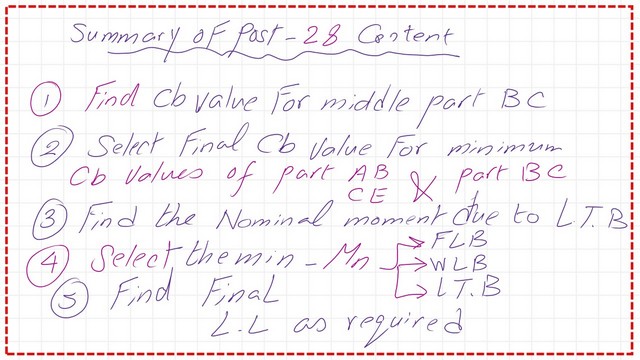 Summary of Post-28 Content
1 Find Cb value For middle part BC
2 Select Final Cb Value For minimum
Cb Values of part AB CE & part BC
3 Find the Nominal moment due to L.T.B
4 Select the min-Mn FLB
WLB
L.T.B
5 Find Final
L.L as required